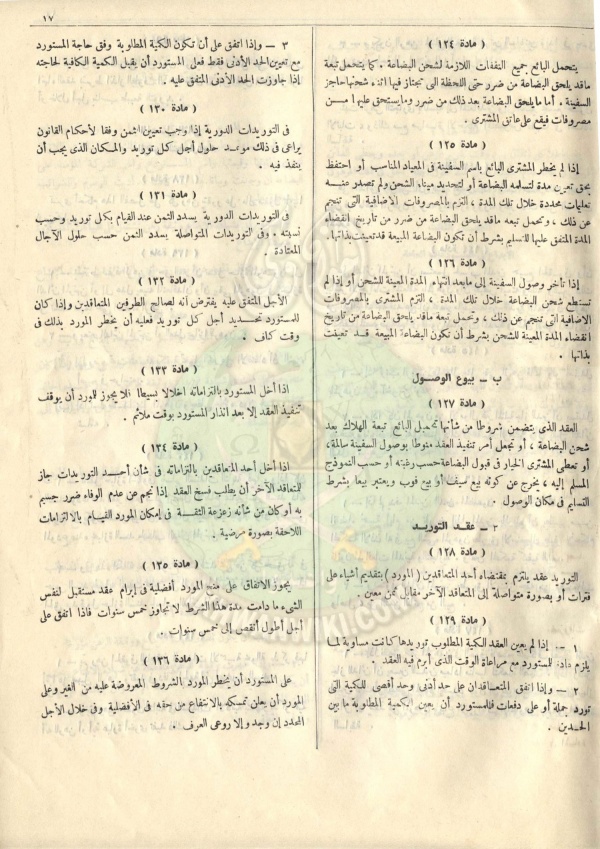 ١٧
( مادة ١٢٤ )
يتحمل البائع جميع النفقات اللازمة لشحن البضاعة . كما يتحمل تبعة
ما قد يلحق البضاعة من ضرر حتى اللحظة التى تجتاز فيها اثناء شحنها حاجز
السفينة . أما ما يلحق البضاعة بعد ذلك من ضرر وما يستحق عليها من
مصروفات فيقع على عاتق المشترى .
( مادة ١٢٥ )
إذا لم يخطر المشترى البائع باسم السفينة فى الميعاد المناسب أو احتفظ
بحق تعيين مدة لتسلمه البضاعة أو لتحديد ميناء الشحن ولم تصدر عنه
تعليمات محددة خلال تلك المدة ، التزم بالمصروفات الاضافية التى تنجم
عن ذلك ، وتحمل تبعة ما قد يلحق البضاعة من ضرر من تاريخ انقضاء
المدة المتفق عليها للتسليم بشرط أن تكون البضاعة المبيعة قد تعينت بذاتها .
( مادة ١٢٦ )
إذا تأخر وصول السفينة إلى ما بعد انتهاء المدة المعينة للشحن أو إذا لم
تستطع شحن البضاعة خلال تلك المدة ، التزم المشترى بالمصروفات
الاضافية التى تنجم عن ذلك ، وتحمل تبعة ما قد يلحق البضاعة من تاريخ
انقضاء المدة المعينة للشحن بشرط أن تكون البضاعة المبيعة قد تعينت
بذاتها .
ب – بيوع الوصول
( مادة ١٢٧ )
العقد الذى يتضمن شروطا من شأنها تحميل البائع تبعة الهلاك بعد
شحن البضاعة ، أو تجعل أمر تنفيذ العقد منوطا بوصول السفينة سالمة ،
أو تعطى المشترى الخيار فى قبول البضاعة حسب رغبته أو حسب النموذج
المسلم إليه ، يخرج عن كونه بيع سيف أو بيع فوب ويعتبر بيعا بشرط
التسليم فى مكان الوصول .
٢ – عقد التوريد
( مادة ١٢٨ )
التوريد عقد يلتزم بمقتضاه أحد المتعاقدين ( المورد ) بتقديم أشياء على
فترات أو بصورة متواصلة إلى المتعاقد الآخر مقابل ثمن معين .
( مادة ١٢٩ )
١ – إذا لم يعين العقد الكمية المطلوب توريدها كانت مساوية لما
يلزم عادة للمستورد مع مراعاة الوقت الذى أبرم فيه العقد .
٢ – وإذا اتفق المتعاقدان على حد أدنى وحد أقصى للكمية التى
تورد جملة أو على دفعات فللمستورد أن يعين الكمية المطلوبة ما بين
الحدين .
٣ – وإذا اتفق على أن تكون الكمية المطلوبة وفق حاجة المستورد
مع تعيين الحد الأدنى فقط فعلى المستورد أن يقبل الكمية الكافية لحاجته
إذا جاوزت الحد الأدنى المتفق عليه .
( مادة ١٣٠ )
فى التوريدات الدورية إذا وجب تعيين الثمن وفقا لأحكام القانون
يراعى فى ذلك موعد حلول أجل كل توريد والمكان الذى يجب أن
ينفذ فيه .
( مادة ١٣١ )
فى التوريدات الدورية يسدد الثمن عند القيام بكل توريد وحسب
نسبته . وفى التوريدات المتواصلة يسدد الثمن حسب حلول الآجال
المعتادة .
( مادة ١٣٢ )
الأجل المتفق عليه يفترض أنه لصالح الطرفين المتعاقدين وإذا كان
للمستورد تحديد أجل كل توريد فعليه أن يخطر المورد بذلك فى
وقت كاف .
( مادة ١٣٣ )
اذا أخل المستورد بالتزاماته اخلالا بسيطا فلا يجوز للمورد أن يوقف
تنفيذ العقد إلا بعد انذار المستورد بوقت ملائم .
( مادة ١٣٤ )
اذا أخل أحد المتعاقدين بالتزاماته فى شأن أحد التوريدات جاز
للمتعاقد الآخر أن يطلب فسخ العقد إذا نجم عن عدم الوفاء ضرر جسيم
به أو كان من شأنه زعزعة الثقة فى إمكان المورد القيام بالالتزامات
اللاحقة بصورة مرضية .
( مادة ١٣٥ )
يجوز الاتفاق على منح المورد أفضلية فى إبرام عقد مستقبل لنفس
الشىء ما دامت مدة هذا الشرط لا تجاوز خمس سنوات فاذا اتفق على
أجل أطول أنقص إلى خمس سنوات .
( مادة ١٣٦ )
على المستورد أن يخطر المورد بالشروط المعروضة عليه من الغير وعلى
المورد أن يعلن تمسكه بالانتفاع من حقه فى الأفضلية وفى خلال الأجل
المحدد إن وجد وإلا روعى العرف .